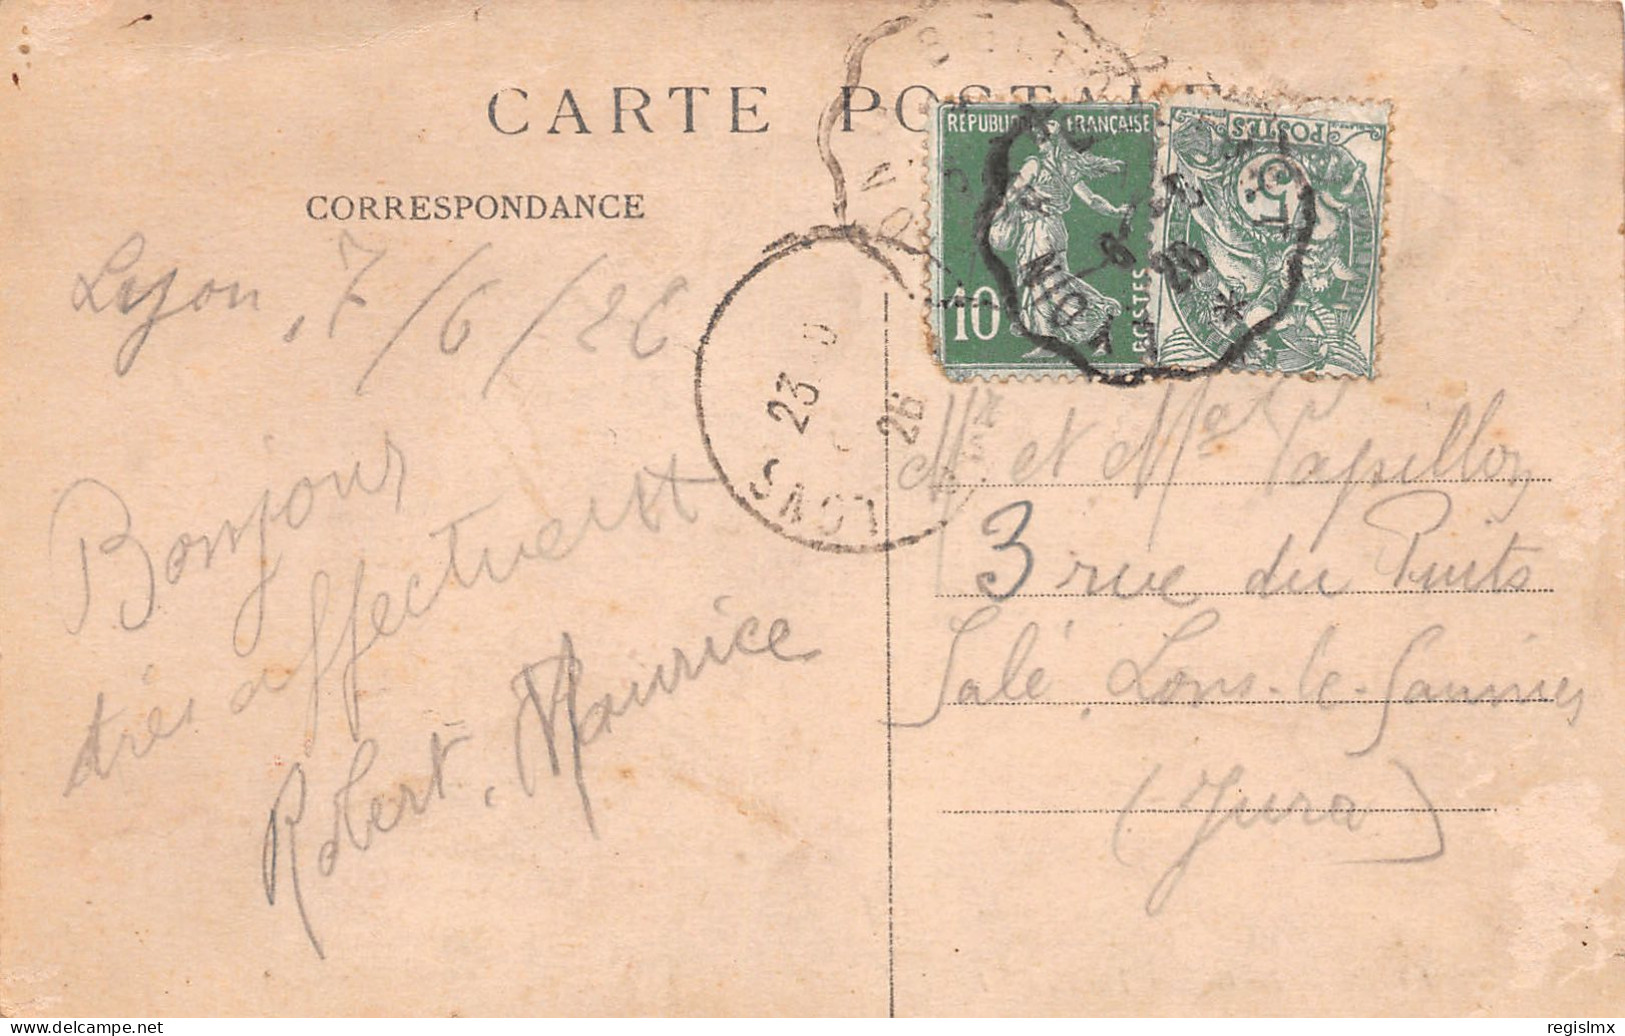 CARTE POSTALE
CORRESPONDANCE
Lyon, 7/6/26
Bonjour
très affectueux
Robert, Maurice
RÉPUBLIQUE FRANÇAISE
10c
POSTES
POSTES
5
23
26
LONS
3 rue du Puits
Salé, Lons-le-Saunier
(Jura)
delcampe.net
regislmx